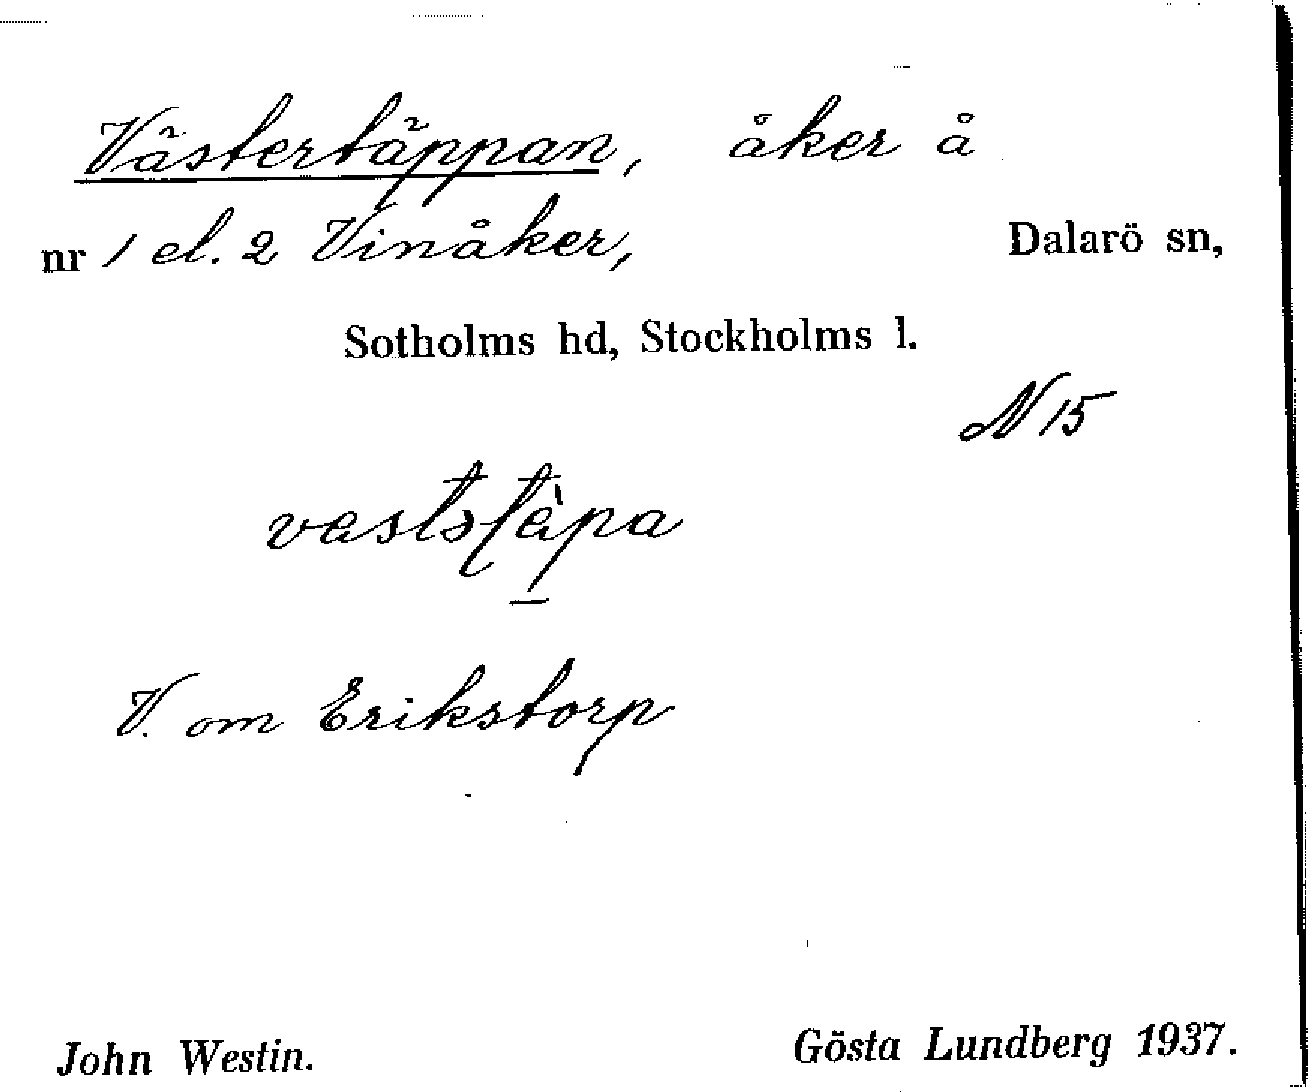 Västertäppan, åker å
nr 1 el. 2 Vinåker, Dalarö sn,
Sotholms hd, Stockholms l.
N 15
V. om Erikstorp
John Westin. Gösta Lundberg 1937.